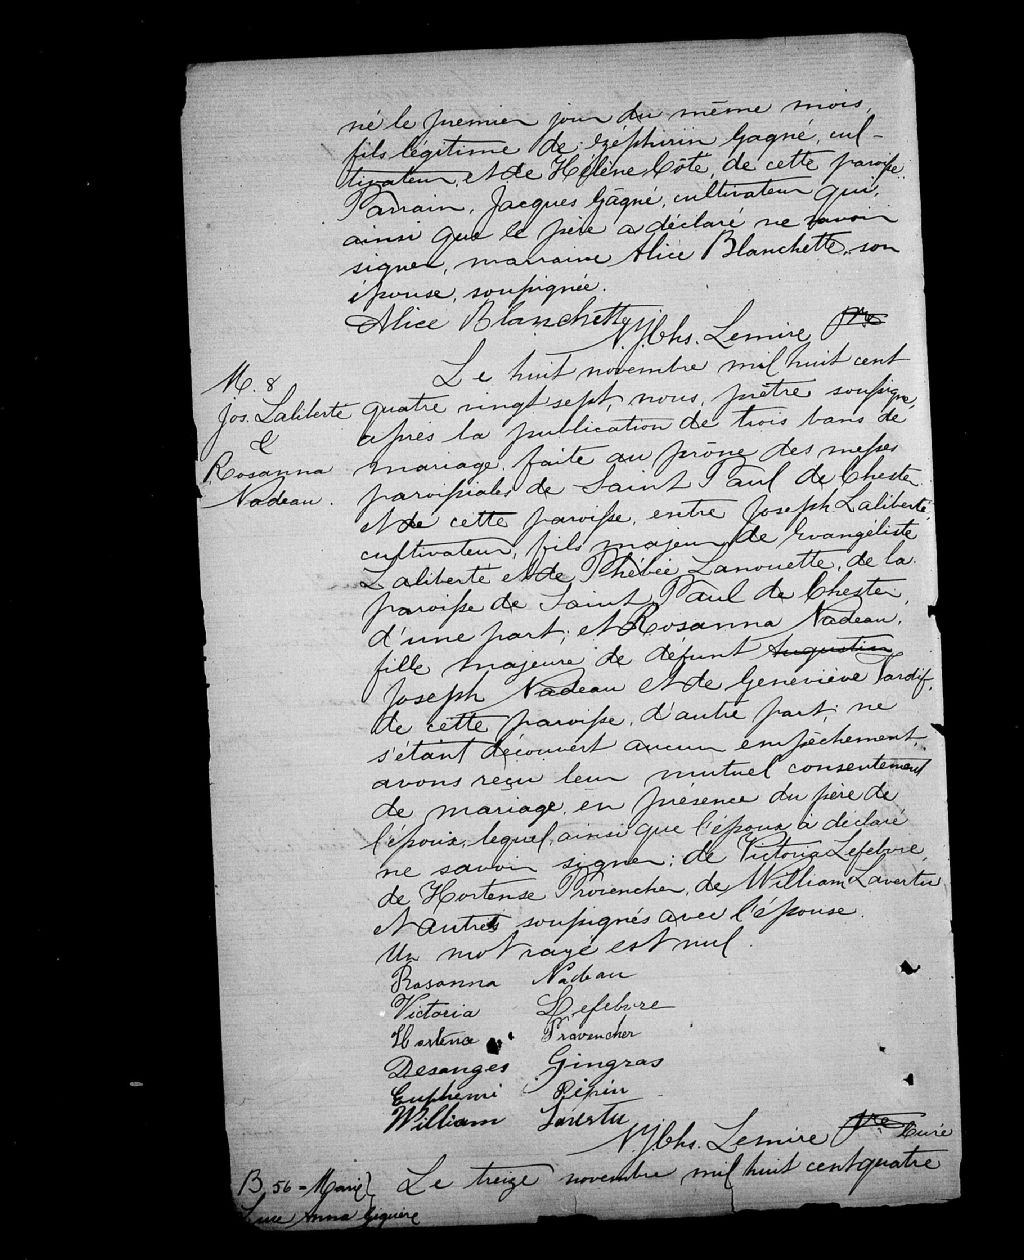 né le premier jour du même mois,
fils légitime de Zéphirin Gagné, cul-
tivateur, et de Hélène Côte, de cette paroisse.
Parrain, Jacques Gagné, cultivateur qui,
ainsi que le père a déclaré ne savoir
signer, marraine Alice Blanchette, son
épouse, soussignée.
Alice Blanchette
N. J. Chs. Lemire Ptre
M. 8
Jos. Laliberté
&
Rosanna
Nadeau.
Le huit novembre mil huit cent
quatre vingt sept, nous, prêtre soussigné,
après la publication de trois bans de
mariage, faite au prône des messes
paroissiales de Saint Paul de Chester
et de cette paroisse, entre Joseph Laliberté,
cultivateur, fils majeur de Evangéliste
Laliberté et de Phébée Lanouette, de la
paroisse de Saint Paul de Chester,
d'une part; et Rosanna Nadeau,
fille majeure de défunt Augustin
Joseph Nadeau et de Geneviève Tardif,
de cette paroisse, d'autre part; ne
s'étant découvert aucun empêchement,
avons reçu leur mutuel consentement
de mariage, en présence du père de
l'époux, lequel, ainsi que l'époux a déclaré
ne savoir signer; de Victoria Lefebvre,
de Hortense Provencher, de William Lavertu
et autres soussignés avec l'épouse.
Un mot rayé est nul.
Rosanna Nadeau
Victoria Lefebvre
Hortence Pravencher
Desanges Gingras
Euphémi Pépin
William Lavertu
N. J. Chs. Lemire Ptre Curé
B. 56 - Marie
Anna Giguère
Le treize novembre mil huit cent quatre